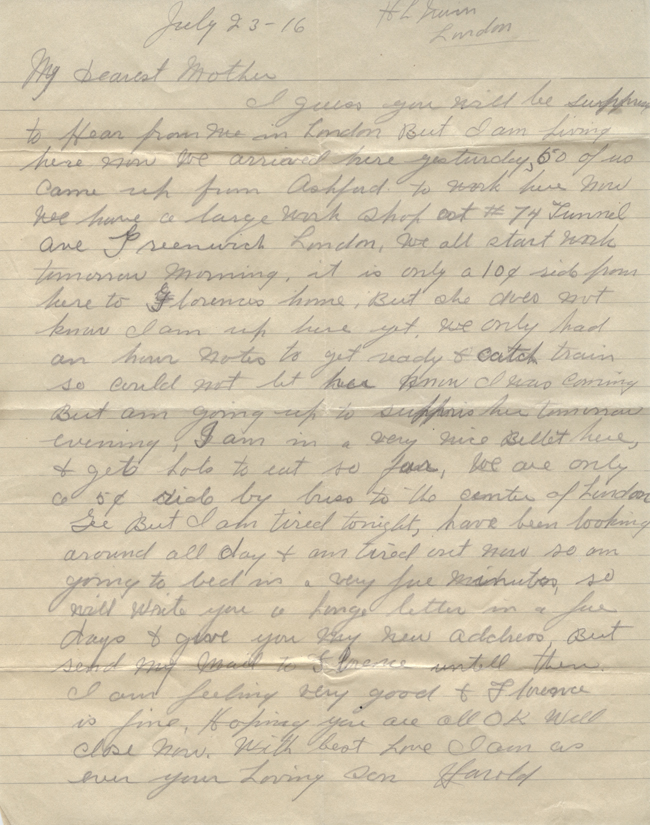 July 23-16
London
My Dearest Mother
I guess you will be
to Hear from Me in London But I am living
here now We arrived here yesterday, 50 of us
came up from Ashford to work here Now
We have a large work shop at # 74 Tunnel
ave Greenwich London, We all start work
tomorrow Morning, it is only a 10¢ ride from
here to Florences home, But she does not
know I am up here yet, we only had
an hour notes to get ready & catch train
so could not let her know I was coming
But am going up to her tomorrow
evening, I am in a very nice Billet here,
& get lots to eat so far, We are only
a 5¢ ride by buss to the center of London
Gee But I am tired tonight, have been looking
around all day & am tired out now so am
going to bed in a very fue minutes, so
will write you a longe letter in a fue
days & give you my new address, But
send My Mail to Florence untell then.
I am feeling very good & Florence
is fine, Hoping you are all OK Will
close Now. With best Love I am as
ever your Loving son Harold